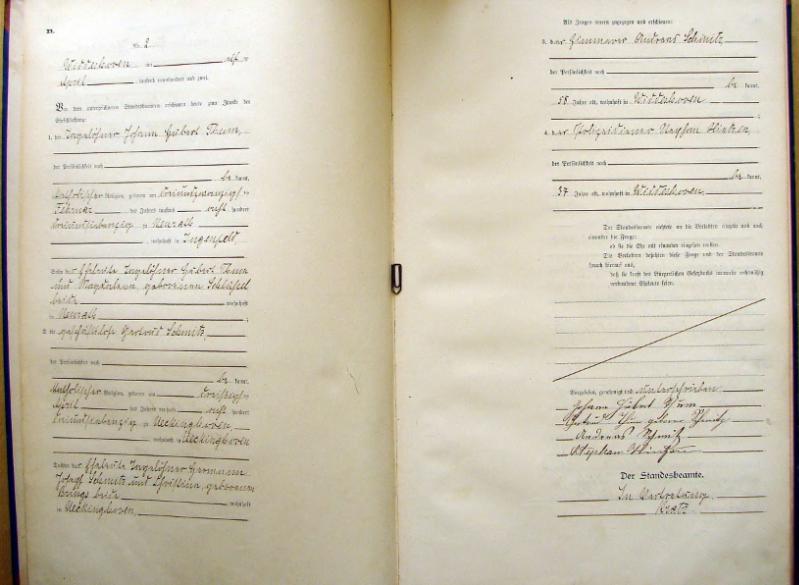 Nr. 2
Widdeshoven am elf ten
April tausend neunhundert und zwei.
Vor dem unterzeichneten Standesbeamten erschienen heute zum Zwecke der
Eheschließung:
1. der Tagelöhner Johann Hubert Thum,
der Persönlichkeit nach
be kannt,
katholischer Religion, geboren am dreiundzwanzigsten
Februar des Jahres tausend acht hundert
dreiundsiebenzig zu Neurath
, wohnhaft in Ingenfeld,
Sohn der Eheleute Tagelöhner Hubert Thum
und Magdalena, geborenen Schlüssel
beide wohnhaft
in Neurath
2. die geschäftslose Gertrud Schmitz,
der Persönlichkeit nach
be kannt,
katholischer Religion, geboren am dreißigsten
April des Jahres tausend acht hundert
zu Neckinghoven,
, wohnhaft in Neckinghoven
Tochter der Eheleute Tagelöhner Hermann
Josef Schmitz und Christina, geborenen
beide wohnhaft
in Neckinghoven,
Als Zeugen waren zugezogen und erschienen:
3. der Andreas Schmitz
der Persönlichkeit nach
be kannt,
58 Jahre alt, wohnhaft in Widdeshoven
4. der Polizeidiener Stephan
der Persönlichkeit nach
be kannt,
37 Jahre alt, wohnhaft in Widdeshoven
Der Standesbeamte richtete an die Verlobten einzeln und nach
einander die Frage:
ob sie die Ehe mit einander eingehen wollen.
Die Verlobten bejahten diese Frage und der Standesbeamte
sprach hierauf aus,
daß sie kraft des Bürgerlichen Gesetzbuchs nunmehr rechtmäßig
verbundene Eheleute seien.
Vorgelesen, genehmigt und unterschrieben
Johann Hubert Thum
Gertrud Thum geborene Schmitz
Andreas Schmitz
Stephan
Der Standesbeamte.
In Vertretung